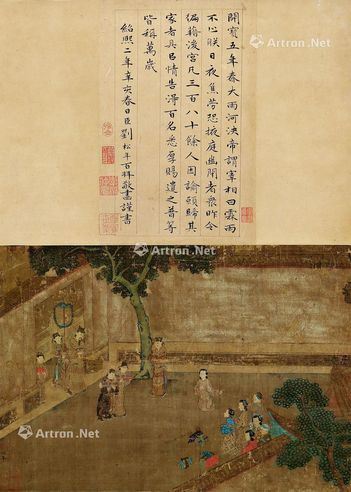 開寶五年春大雨河決帝謂宰相曰霖雨
不止朕日夜焦勞恐掖庭幽閉者衆昨令
徧籍後宮凡三百八十餘人因諭願歸其
家者具以情告得百名悉厚賜遣之普等
皆稱萬歲
紹熙二年辛亥春日臣劉松年百拜敬畫謹書
Artron.Net
Artron.Net
Artron.Net
Artron.Net